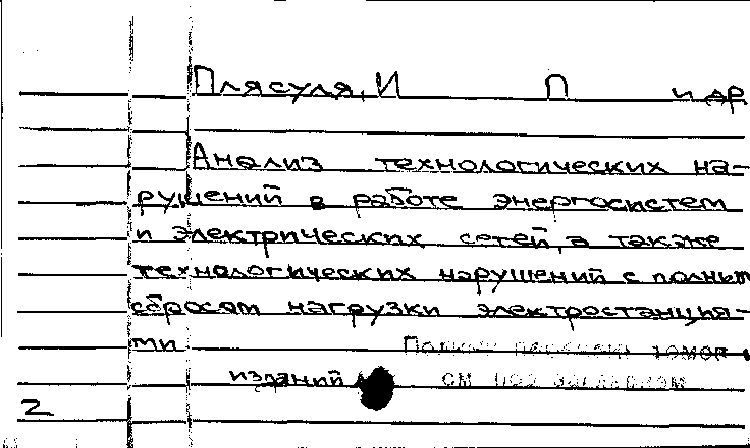 Плясуля, И П и др
Анализ технологических на-
рушений в работе энергосистем
и электрических сетей, а также
технологических нарушений с полным
сбросом нагрузки электростанция-
ми Полный перечень томов
изданий см под заглавием
2